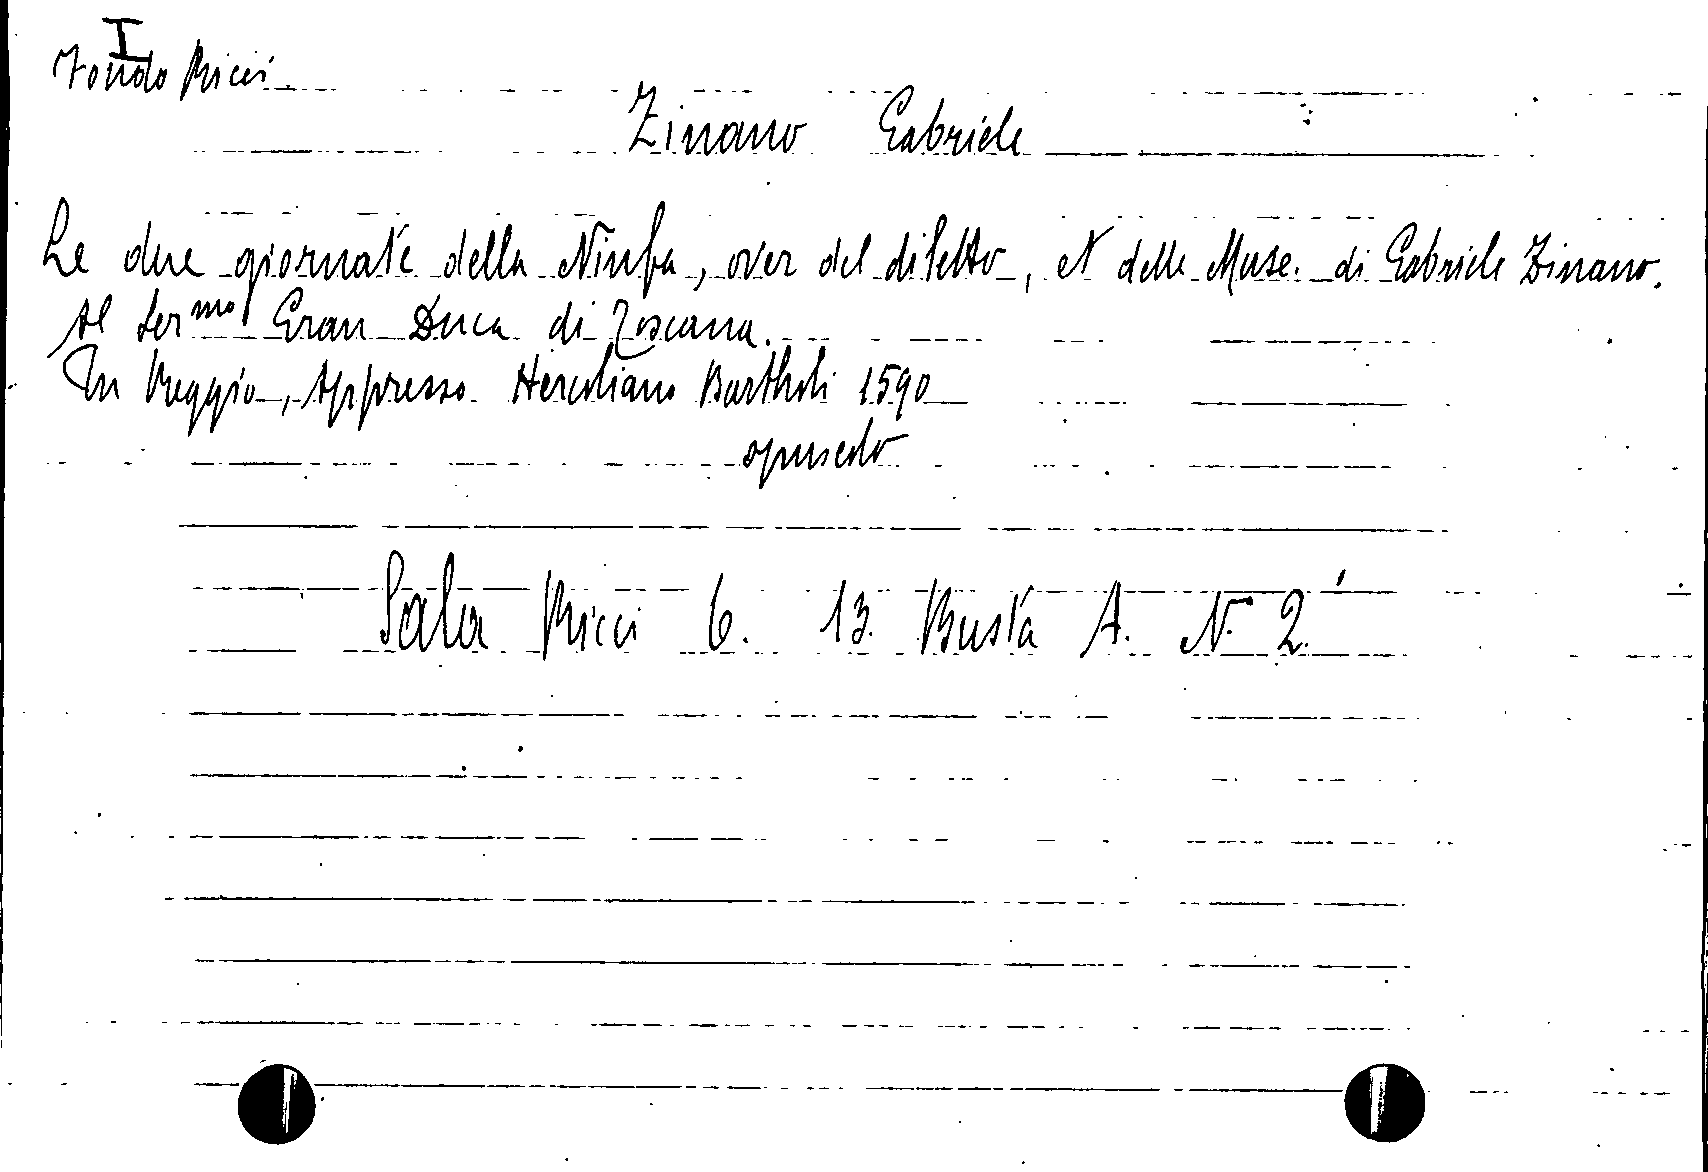 I
Fondo Ricci
Zinano Gabriele
Le due giornate della Ninfa, over del diletto, et delle Muse. di Gabriele Zinano.
Al Ser.mo Gran Duca di Toscana.
In Reggio, Appresso Hercoliano Bartholi 1590
opuscolo
Sala Ricci 6. 13. Busta A. N. 2.